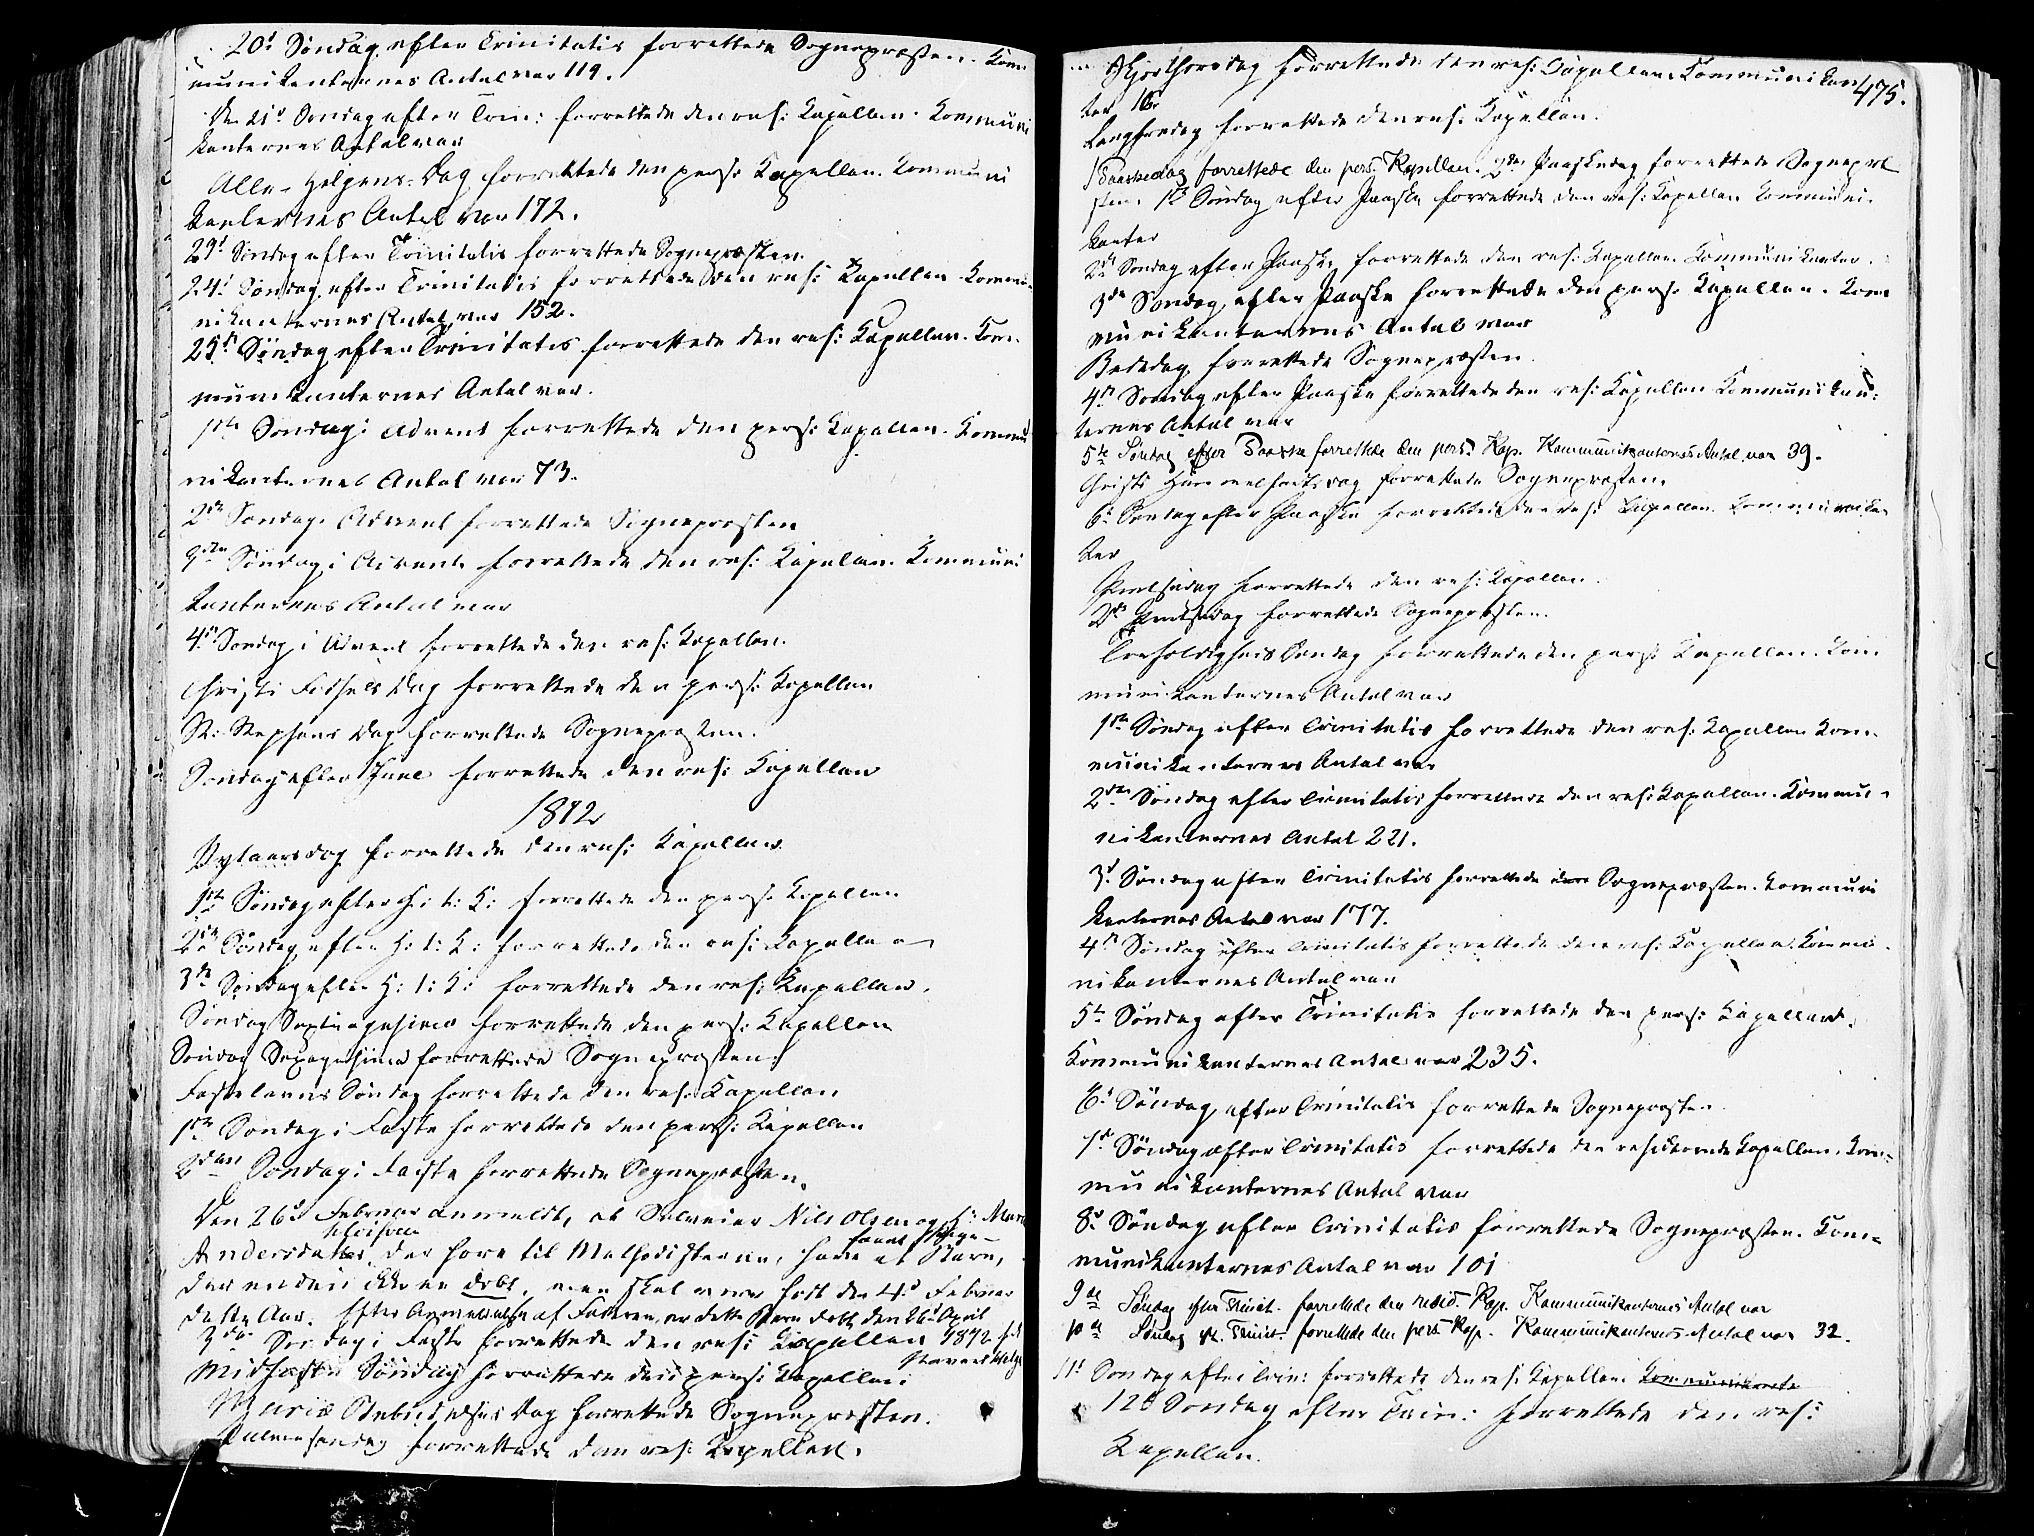 20d Søndag efter Trinitatis forrettede Sognepræsten. Kom
munikanternes Antal var 119.
Den 21d Søndag efter Trin: forrettede den res: Kapellan. Kommuni
kanternes Antal var
Alle-Helgens-Dag forrettede den pers: Kapellan. Kommuni
kanternes Antal var 172.
23d Søndag efter Trinitatis forrettede Sognepræsten.
24d Søndag efter Trinitatis forrettede den res: Kapellan. Kommu-
nikanternes Antal var 152.
25d Søndag efter Trinitatis forrettede den res: Kapellan. Kom-
munikanternes Antal var.
1ste Søndag i Advent forrettede den pers: Kapellan. Kommu
nikanternes Antal var 73.
2den Søndag i Advent forrettede Sognepræsten
3die Søndag i Advent forrettede den res: Kapellan. Kommuni
kanternes Antal var
4de Søndag i Advent forrettede den res: Kapellan.
Christi Fødsels Dag forrettede den pers: Kapellan
St: Stephans Dag forrettede Sognepræsten.
Søndag efter Juul forrettede den res: Kapellan
1872
Nytaarsdag forrettede den res: Kapellan
1ste Søndag efter H: t: K: forrettede den pers: Kapellan
2den Søndag efter H: t: K: forrettede den res: Kapellan
3de Søndag efter H: t: K: forrettede den res: Kapellan.
Søndag Septuagesima forrettede den pers: Kapellan
Søndag Sexagesima forrettede Sognepræsten.
Fastelavns Søndag forrettede den res: Kapellan
1ste Søndag i Faste forrettede den pers: Kapellan
2den Søndag i Faste forrettede Sognepræsten.
Den 26de Februar anmeldt, at Nils Olsen og H: Maren
Andersdatter, der høre til Methodisterne, have et Barn,
der endnu ikke er døbt, men skal være født den 4d Februar
dette Aar. Efter Anmeldelse af Faderen er dette Barn døbt den 26d April
3die Søndag i Faste forrettede den res: Kapellan 1872
Midfaste Søndag forrettede den pers: Kapellan.
Mariæ Bebudelses Dag forrettede Sognepræsten.
Palmesøndag forrettede den res: Kapellan.
475.
Skjærthorsdag forrettede den res: Capellan. Kommunikan
ter 16.
Langfredag forrettede den res: Kapellan.
1 Paaskedag forrettede den pers. Kapellan. 2den Paaskedag forrettede Sognepræ
sten. 1ste Søndag efter Paaske forrettede den res: Kapellan. Kommuni-
kanter
2den Søndag efter Paaske forrettede den res: Kapellan. Kommunikanter.
3de Søndag efter Paaske forrettede den pers: Kapellan. Kom
munikanternes Antal var
Bededag forrettede Sognepræsten.
4de Søndag efter Paaske forrettede den res: Kapellan Kommunikan-
ternes Antal var
5te Søndag efter Paaske forrettede den pers. Kap. Kommunikanternes Antal var 39.
Christi Himmelfartsdag forrettede Sognepræsten.
6te Søndag efter Paaske forrettede den res: Kapellan. Kommunikan
ter
Pintsedag forrettede den res: Kapellan.
2den Pintsedag forrettede Sognepræsten.
Trefoldigheds Søndag forrettede den pers: Kapellan. Kom
munikanternes Antal var
1ste Søndag efter Trinitatis forrettede den res: Kapellan Kom-
munikanternes Antal var
2den Søndag efter Trinitatis forrettede den res: Kapellan. Kommu-
nikanternes Antal 221.
3d Søndag efter Trinitatis forrettede den Sognepræsten. Kommuni
kanternes Antal var 177.
4de Søndag efter Trinitatis forrettede den res: Kapellan. Kommu-
nikanternes Antal var
5te Søndag efter Trinitatis forrettede den pers: Kapellan.
Kommunikanternes Antal var 235.
6d Søndag efter Trinitatis forrettede Sognepræsten.
7d Søndag efter Trinitatis forrettede den residerende Kapellan. Kom-
munikanternes Antal var
8d Søndag efter Trinitatis forrettede Sognepræsten. Kom-
munikanternes Antal var 101
9de Søndag efter Trinit. forrettede den resid. Kap. Kommunikanternes Antal var
10de Søndag ef. Trinit. forrettede den pers. Kap. Kommunikanternes Antal var 32.
11d Søndag efter Trin: forrettede den res: Kapellan.
12d Søndag efter Trin: forrettede den res:
Kapellan.